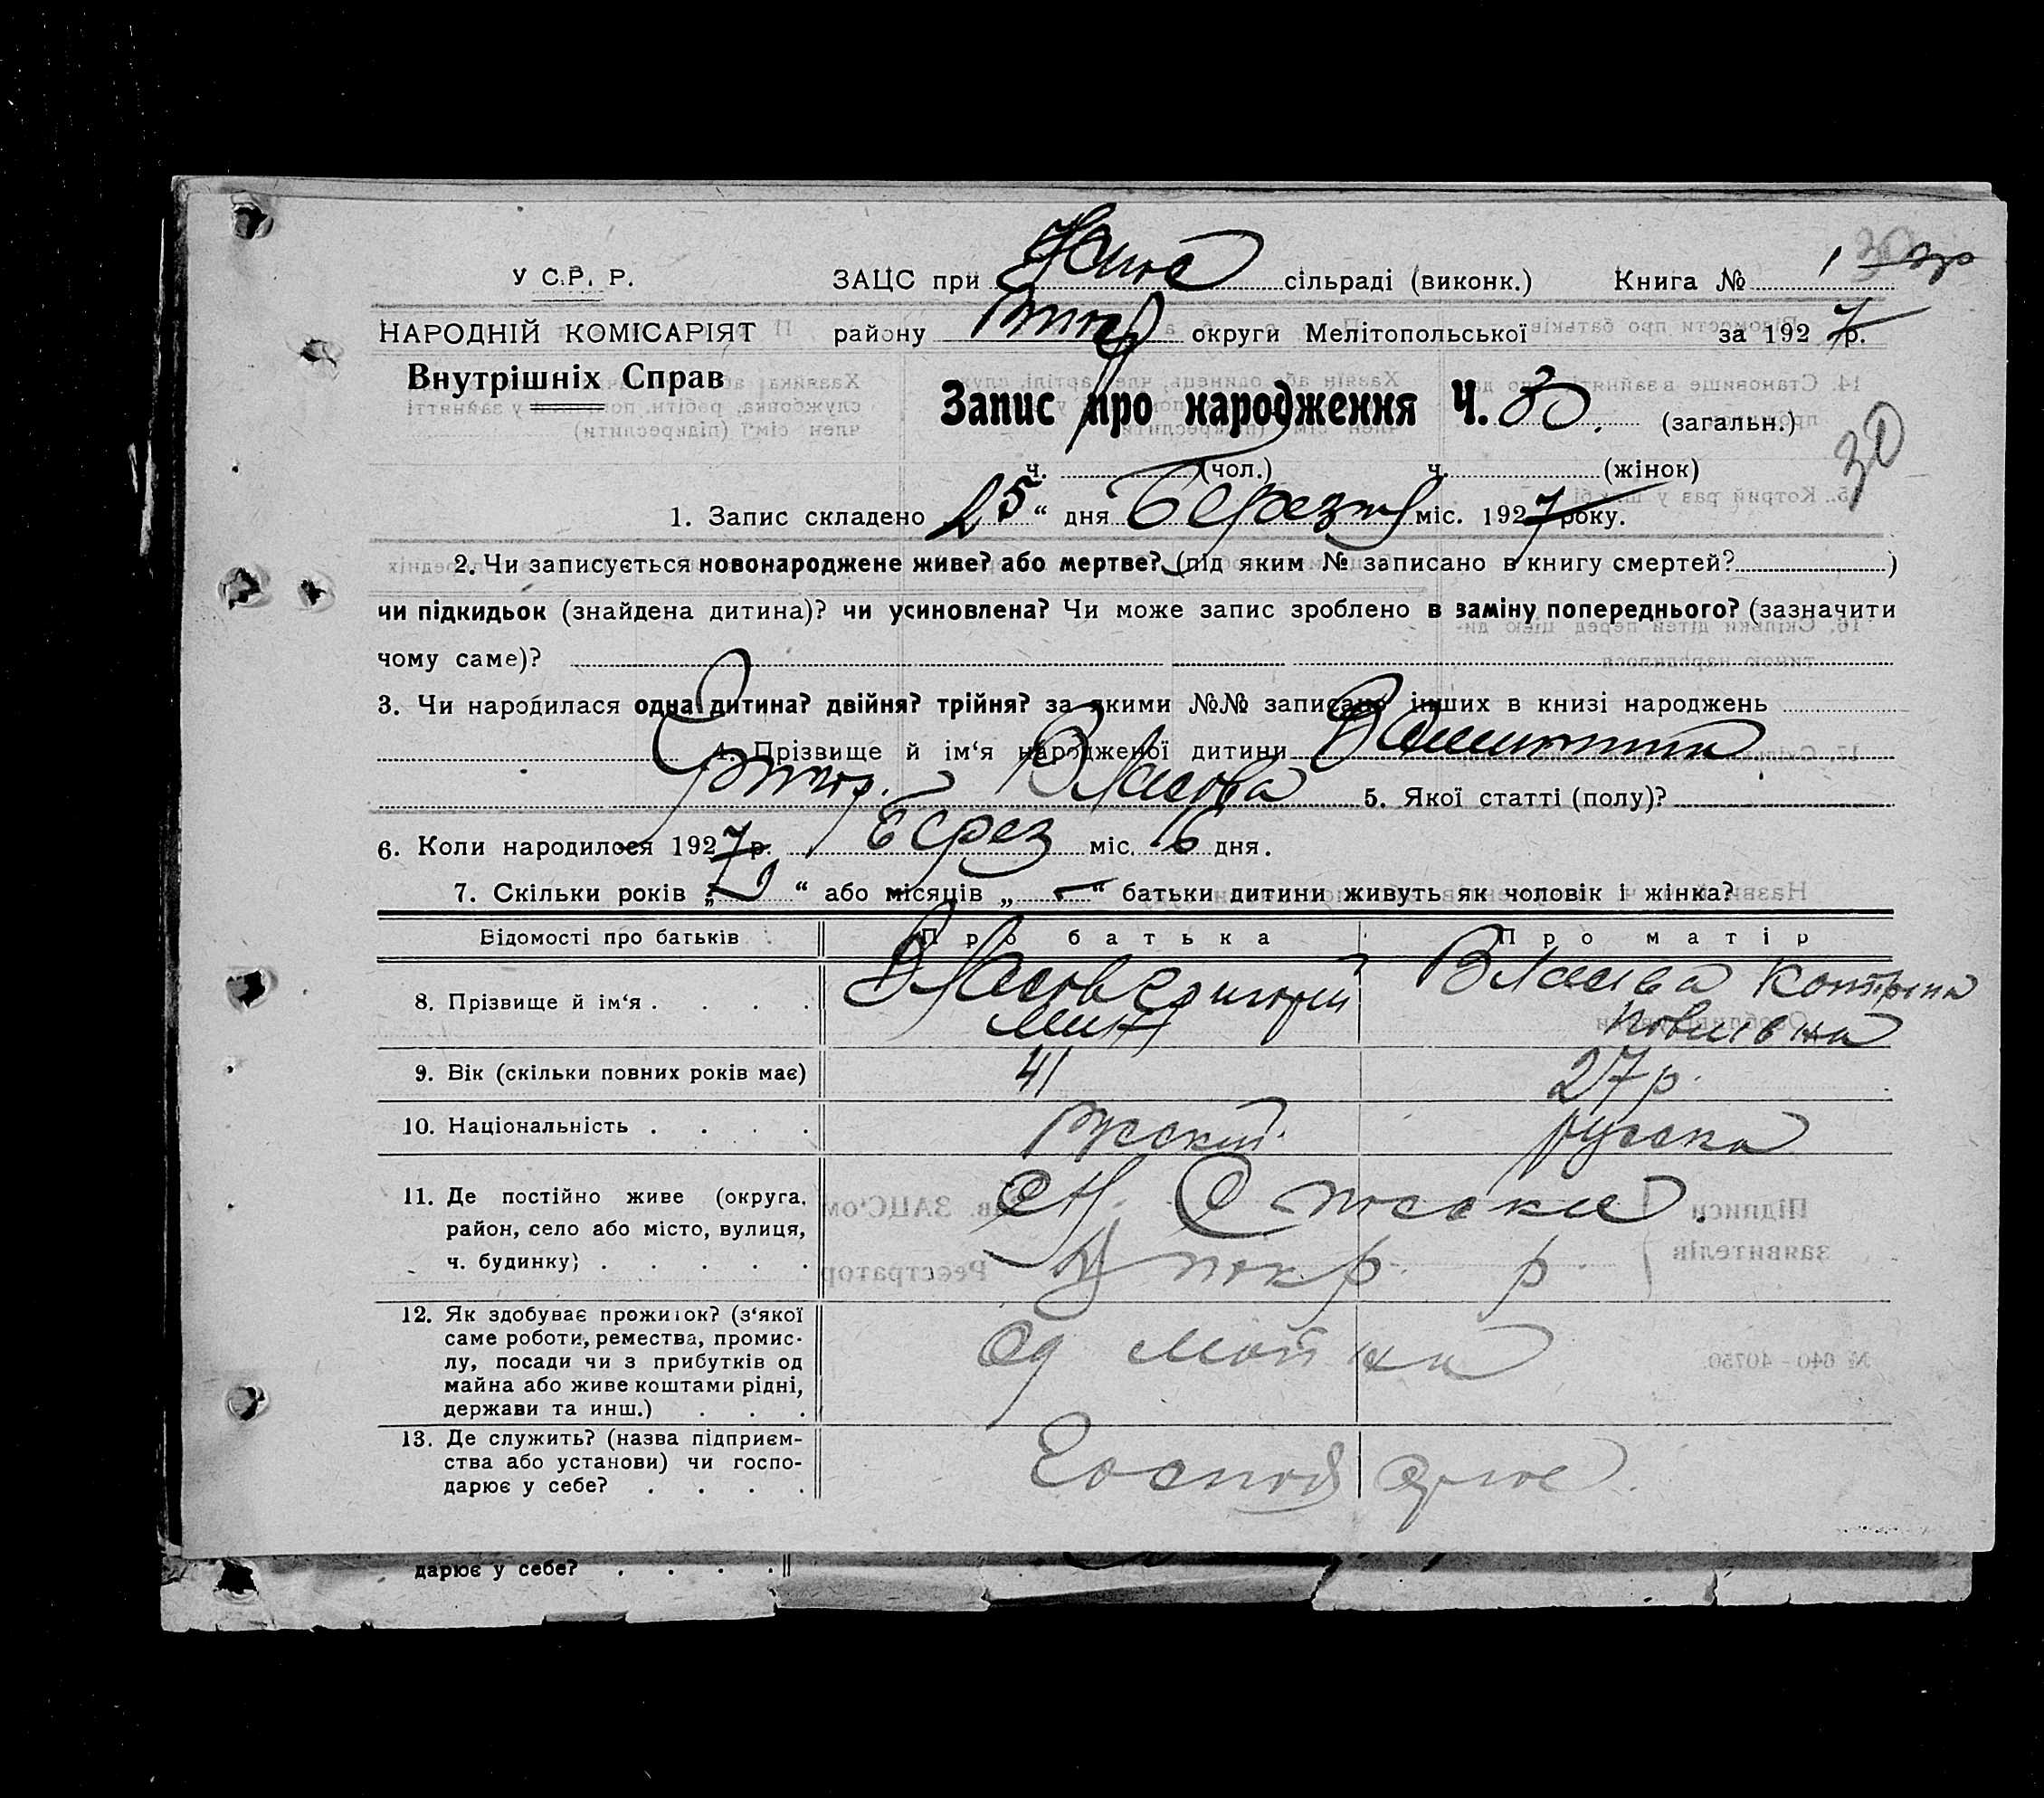 У С.Р. Р. ЗАЦС при сільраді (виконк.) Книга № 1 30
НАРОДНІЙ КОМІСАРІЯТ району округи Мелітопольської за 1927 р.
Внутрішніх Справ
Запис про народження Ч. 30. (загальн.)
30
ч. (чол.) ч. (жінок)
1. Запис складено 25 “ дня Березня міс. 1927 року.
2. Чи записується новонароджене живе? або мертве? (під яким № записано в книгу смертей? )
чи підкидьок (знайдена дитина)? чи усиновлена? Чи може запис зроблено в заміну попереднього? (зазначити
чому саме)?
3. Чи народилася одна дитина? двійня? трійня? за якими №№ записано інших в книзі народжень
4. Прізвище й ім‘я народженої дитини Валентина
Григор. Власова 5. Якої статті (полу)?
6. Коли народилося 1927 р. Берез міс. 16 дня.
7. Скільки років „ “ або місяців „ - “ батьки дитини живуть як чоловік і жінка?
Відомості про батьків Про батька Про матір
8. Прізвище й ім‘я . . . . Власов Григорій Власова Катерина
9. Вік (скільки повних років має) 41 27 р.
10. Національність . . . . руский. русска
11. Де постійно живе (округа,
район, село або місто, вулиця,
ч. будинку) . . . . .
р.
12. Як здобуває прожиток? (з‘якої
саме роботи, ремества, промис-
лу, посади чи з прибутків од
майна або живе коштами рідні,
держави та инш.) . . .
Од майна
13. Де служить? (назва підприєм-
ства або установи) чи госпо-
дарює у себе? . . . .
Господарює.
дарює у себе? . . . .